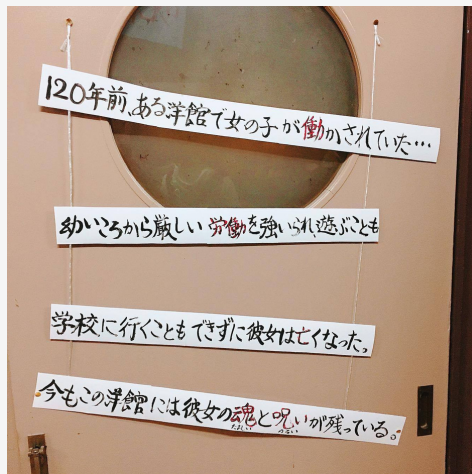 120年前、ある洋館で女の子が働かされていた…
幼いころから厳しい労働を強いられ、遊ぶことも
学校に行くこともできずに彼女は亡くなった。
今もこの洋館には彼女の魂と呪いが残っている。
たましい のろい